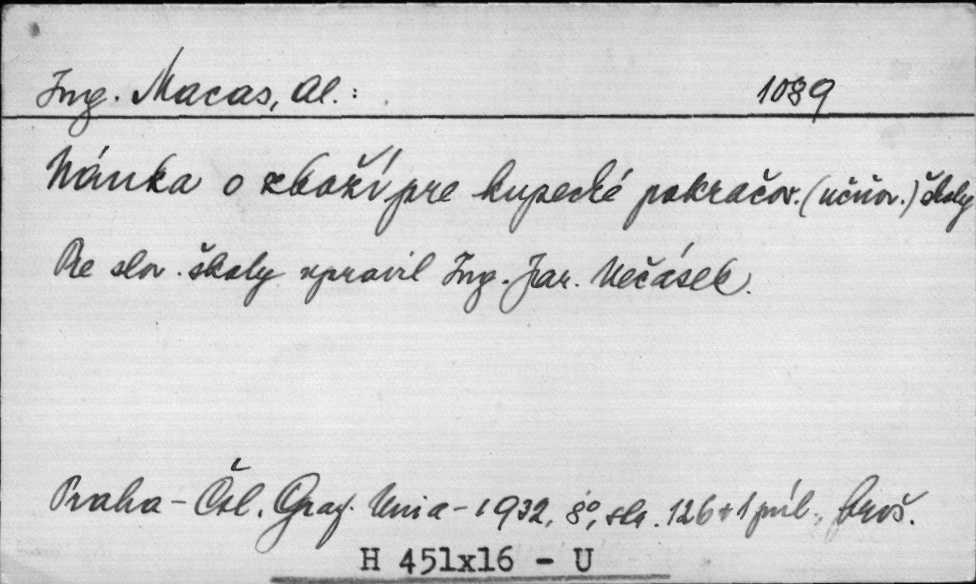 Ing. Macas, Al.: 1089
Náuka o zboží pre kupecké pokračov. (učňov.) školy
Pre slov. školy upravil Ing. Jar. Nečásek.
Praha - Čsl. Graf. Unia - 1932, 8°, str. 126 + 1 príl., broš.
H 451x16 - U